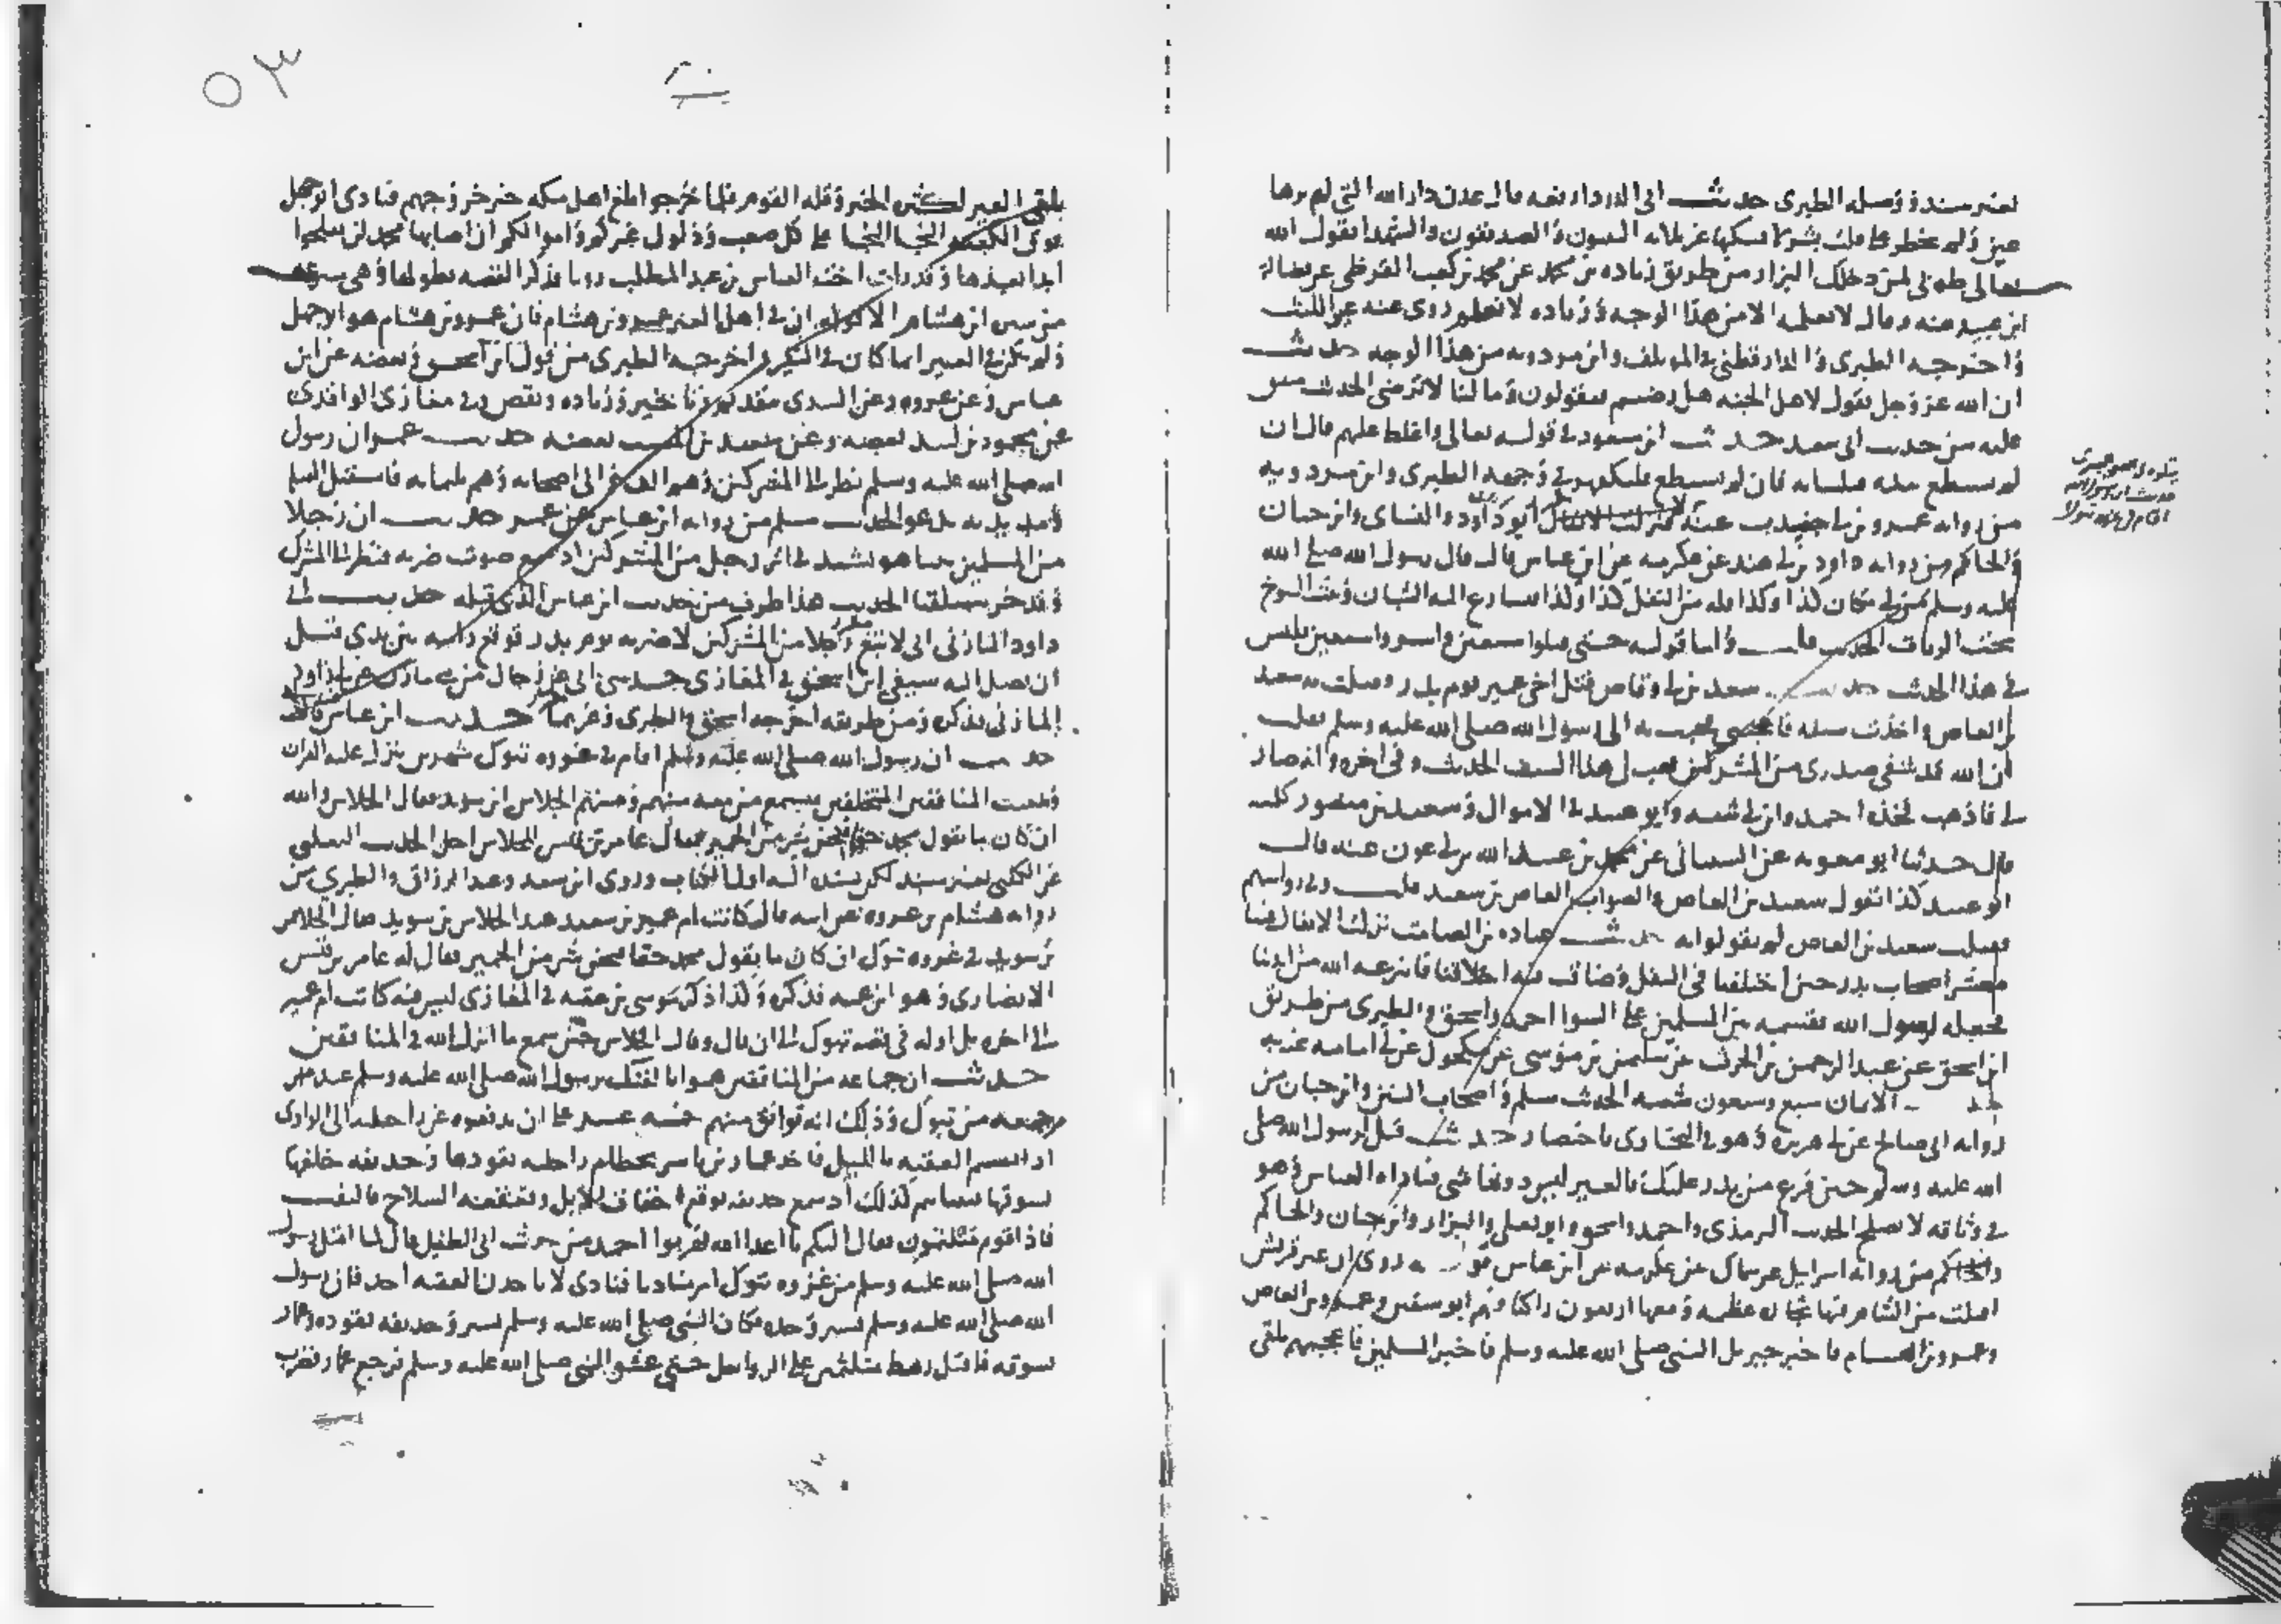 بغير سند ووصله الطبري حديث أبي الدرداء رفعه قال عدن دار الله التي لم يرها
عين ولم يخطر على قلب بشر لا يسكنها غير ثلاثة النبيون والصديقون والشهدا يقول الله
تعالى طوبى لمن دخلك البزار من طريق زياده بن محمد عن محمد بن كعب القرظي عن فضالة
ابن عبيد عنه وقال لا نعلمه الا من هذا الوجه وزياده لا نعلم روى عنه غير الليث
واخرجه الطبري والدارقطني في المؤتلف وابن مردويه من هذا الوجه حديث
ان الله عز وجل يقول لاهل الجنه هل رضيتم فيقولون وما لنا لا نرضى الحديث متفق
عليه من حديث ابي سعيد حديث ابن مسعود في قوله تعالى واغلظ عليهم قال ان
لم يستطع بيده فبلسانه فان لم يستطع فليكفهر في وجهه الطبري وابن مردويه
من روايه عمرو بن ابي جندب عنه ابو داود والنساي وابن حبان
والحاكم من روايه داود بن ابي هند عن عكرمه عن ابن عباس قال قال رسول الله صلى الله
عليه وسلم من اتى مكان كذا وكذا فله من النفل كذا وكذا فتسارع اليه الشبان وثبت الشيوخ
تحت الرايات الحديث قلت واما قوله حتى قتلوا سبعين واسروا سبعين فليس
في هذا الحديث حديث سعد بن ابي وقاص قتل اخي عمير يوم بدر وقتلت به سعيد
بن العاص واخذت سيفه فاعجبني فجيت به الى رسول الله صلى الله عليه وسلم فقلت
ان الله قد شفى صدري من المشركين فهب لي هذا السيف الحديث وفي اخره وانه صار
لي فاذهب فخذه احمد وابن ابي شيبه وابو عبيد في الاموال وسعيد بن منصور كلهم
قال حدثنا ابو معويه عن الشيباني عن محمد بن عبيد الله بن ابي عون عنه قال
ابو عبيد كذا نقول سعيد بن العاص والصواب العاص بن سعيد قلت وفي روايتهم
فقتلت سعيد بن العاص لم يقولوا به حديث عباده بن الصامت نزلت الانفال فينا
معشر اصحاب بدر حين اختلفنا في النفل وساءت فيه اخلاقنا فانتزعه الله من ايدينا
فجعله لرسول الله فقسمه بين المسلمين على السوا احمد واسحق والطبري من طريق
ابن اسحق عن عبد الرحمن بن الحرث عن سليمن بن موسى عن مكحول عن ابي امامه عنه به
الايمان بضع وسبعون شعبه الحديث مسلم واصحاب السنن وابن حبان من
روايه ابي صالح عن ابي هريره وهو في البخاري باختصار حديث قيل لرسول الله صلى
الله عليه وسلم حين فرغ من بدر عليك بالعير ليس دونها شي فناداه العباس وهو
في وثاقه لا يصلح الحديث الترمذي واحمد واسحق وابو يعلى والبزار وابن حبان والحاكم
من روايه اسرايل عن سماك عن عكرمه عن ابن عباس قوله روى ان عير قريش
اقبلت من الشام فيها تجاره عظيمه ومعها اربعون راكبا منهم ابو سفين وعمرو بن العاص
وعمرو بن هشام فاخبر جبريل النبي صلى الله عليه وسلم فاخبر المسلمين فاعجبهم تلقي
تلقي العير لكثره الخير وقله القوم فلما خرجوا بلغ اهل مكه خبر خروجهم فنادى ابو جهل
فوق الكعبه النجا النجا على كل صعب وذلول عيركم واموالكم ان اصابها محمد لن تفلحوا
ابدا بعدها وقد رات اخت العباس بن عبد المطلب رويا فذكر القصه بطولها وهي
ابن هشام الا قوله ان في اهل العير عمرو بن هشام فان عمرو بن هشام هو ابو جهل
ولم يكن في العير انما كان في النفير واخرجه الطبري من قول ابن اسحق وبعضه عن ابن
عباس وعن عروه وعن السدي وزياده ونقص وفي مغازي الواقدي
عن محمود بن لبيد بعضه وعن سعيد بن المسيب بعضه حديث عمر ان رسول
الله صلى الله عليه وسلم نظر الى المشركين وهم الف والى اصحابه وهم ثلثمايه فاستقبل القبله
ومد يديه يدعو الحديث مسلم من روايه ابن عباس عن عمر حديث ان رجلا
من المسلمين بينما هو يشتد في اثر رجل من المشركين اذ سمع صوت ضربه فنظر الى المشرك
وقد خر مستلقيا الحديث هذا طرف من حديث ابن عباس الذي قبله حديث ابي
داود المازني اني لاتبع رجلا من المشركين لاضربه يوم بدر فوقع راسه بين يدي قبل
ان يصل اليه سيفي ابن اسحق في المغازي حدثني ابي عن رجال من بني مازن عن ابي داود
المازني فذكره ومن طريقه اخرجه اسحق والطبري وغيرهما حديث ابن عباس
حديث ان رسول الله صلى الله عليه وسلم اقام في غزوه تبوك شهرين ينزل عليه القران
ويعيب المنافقين المتخلفين فيسمع من معه منهم ومنهم الجلاس بن سويد فقال الجلاس والله
ان كان ما يقول محمد حقا لنحن شر من الحمير فقال عامر بن قيس للجلاس اجل الحديث الثعلبي
عن الكلبي بغير سند لكن سنده اليه اول الكتاب وروى ابن سعد وعبد الرزاق والطبري من
روايه هشام بن عروه عن ابيه قال كانت ام عمير بن سعيد عند الجلاس بن سويد فقال الجلاس
بن سويد في غزوه تبوك ان كان ما يقول محمد حقا لنحن شر من الحمير فقال له عامر بن قيس
الانصاري وهو ابن عمه فذكره وكذا ذكر موسى بن عقبه في المغازي ليس فيه كانت ام عمير
الى اخره بل اوله في قصه تبوك الى ان قال وقال الجلاس حين سمع ما انزل الله في المنافقين
حديث ان جماعه من المنافقين هموا بالفتك برسول الله صلى الله عليه وسلم عند
مرجعه من تبوك وذلك انه توافق منهم خمسه عشر على ان يدفعوه عن راحلته الى الوادي
اذا تسنم العقبه بالليل فاخذ عمار بن ياسر بخطام راحلته يقودها وحذيفه خلفها
يسوقها فبينما هم كذلك اذ سمع حذيفه بوقع اخفاف الابل وبقعقعه السلاح فالتفت
فاذا قوم متلثمون فقال اليكم يا اعدا الله فهربوا احمد من حديث ابي الطفيل قال لما اقبل رسول
الله صلى الله عليه وسلم من غزوه تبوك امر مناديا فنادى لا ياخذن العقبه احد فان رسول
الله صلى الله عليه وسلم يسير وحده فكان النبي صلى الله عليه وسلم يسير وحذيفه يقوده وعمار
يسوقه فاقبل رهط متلثمين على الرواحل حتى غشوا النبي صلى الله عليه وسلم فرجع عمار فضرب
٥٣